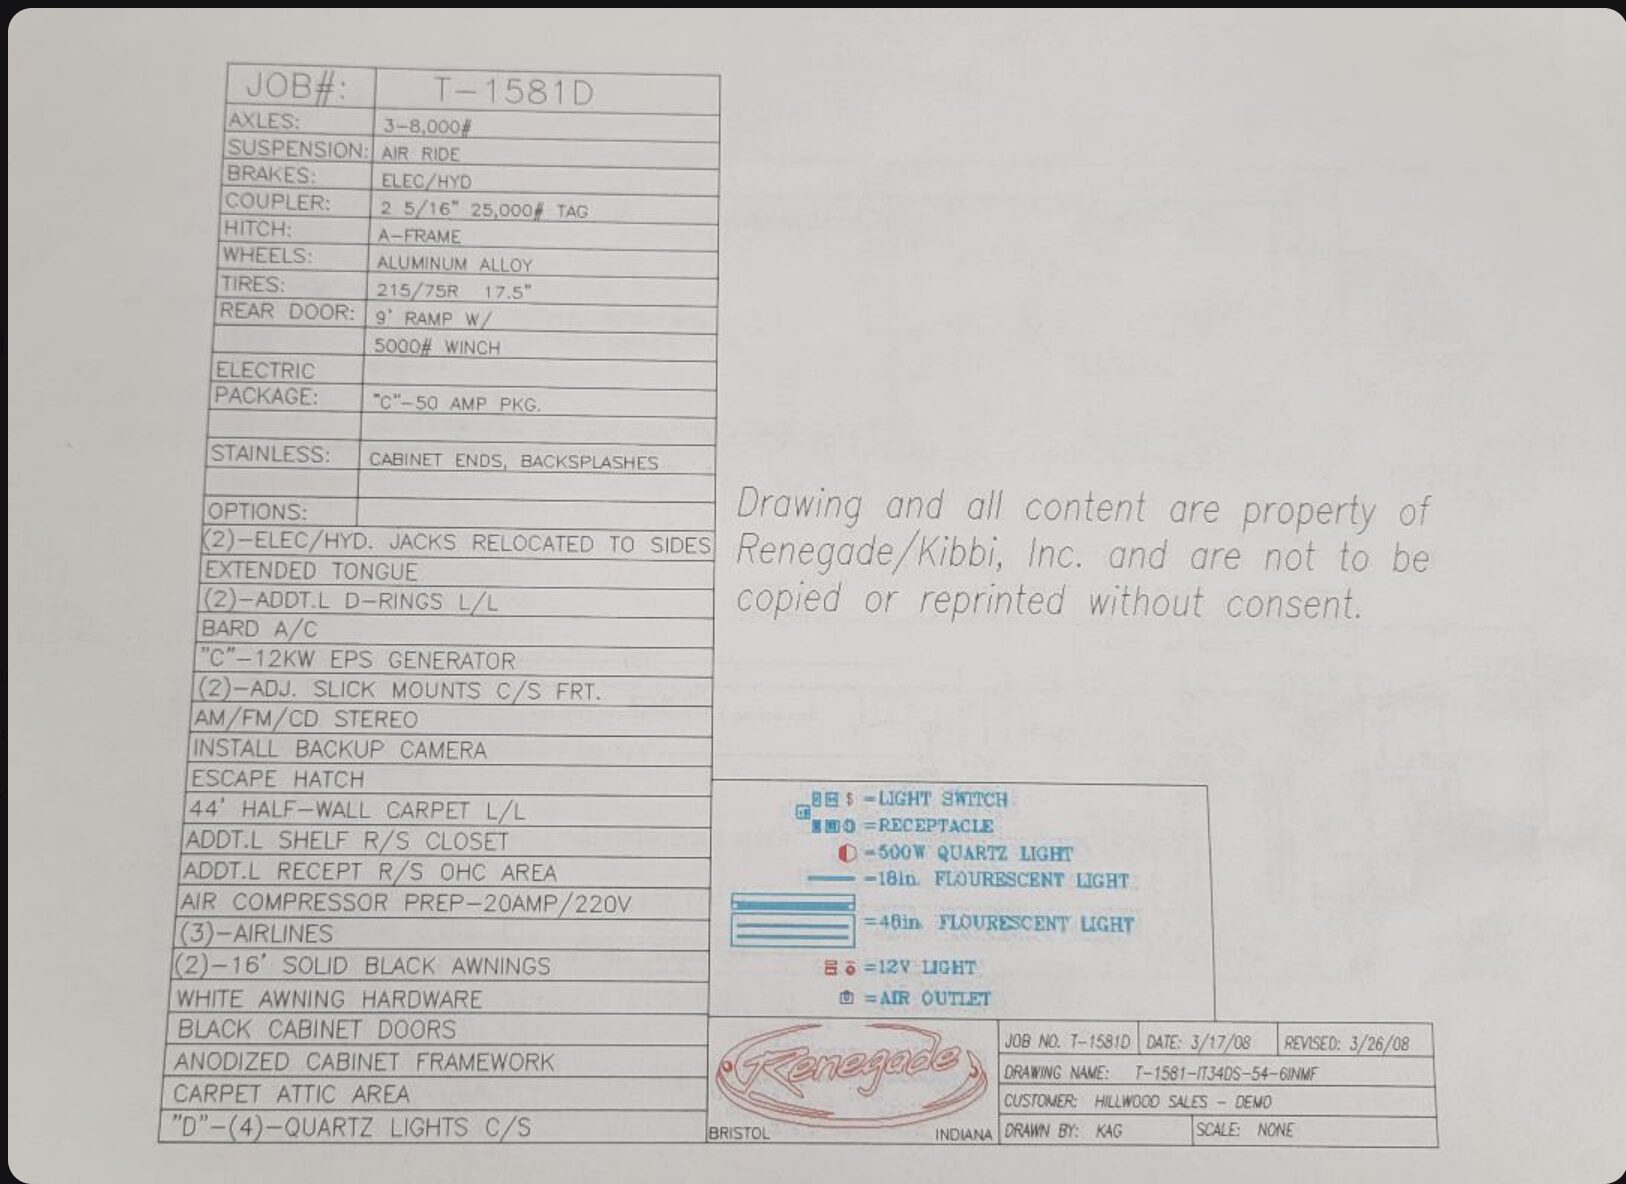 JOB#: T-1581D
AXLES: 3-8,000#
SUSPENSION: AIR RIDE
BRAKES: ELEC/HYD
COUPLER: 2 5/16" 25,000# TAG
HITCH: A-FRAME
WHEELS: ALUMINUM ALLOY
TIRES: 215/75R 17.5"
REAR DOOR: 9' RAMP W/
5000# WINCH
ELECTRIC
PACKAGE: "C"-50 AMP PKG.
STAINLESS: CABINET ENDS, BACKSPLASHES
OPTIONS:
(2)-ELEC/HYD. JACKS RELOCATED TO SIDES
EXTENDED TONGUE
(2)-ADDT.L D-RINGS L/L
BARD A/C
"C"-12KW EPS GENERATOR
(2)-ADJ. SLICK MOUNTS C/S FRT.
AM/FM/CD STEREO
INSTALL BACKUP CAMERA
ESCAPE HATCH
44' HALF-WALL CARPET L/L
ADDT.L SHELF R/S CLOSET
ADDT.L RECEPT R/S OHC AREA
AIR COMPRESSOR PREP-20AMP/220V
(3)-AIRLINES
(2)-16' SOLID BLACK AWNINGS
WHITE AWNING HARDWARE
BLACK CABINET DOORS
ANODIZED CABINET FRAMEWORK
CARPET ATTIC AREA
"D"-(4)-QUARTZ LIGHTS C/S
Drawing and all content are property of
Renegade/Kibbi, Inc. and are not to be
copied or reprinted without consent.
$ =LIGHT SWITCH
=RECEPTACLE
=500W QUARTZ LIGHT
=18in. FLOURESCENT LIGHT
=48in. FLOURESCENT LIGHT
=12V LIGHT
=AIR OUTLET
Renegade
BRISTOL INDIANA
JOB NO. T-1581D DATE: 3/17/08 REVISED: 3/26/08
DRAWING NAME: T-1581-IT34DS-54-6INMF
CUSTOMER: HILLWOOD SALES - DEMO
DRAWN BY: KAG SCALE: NONE